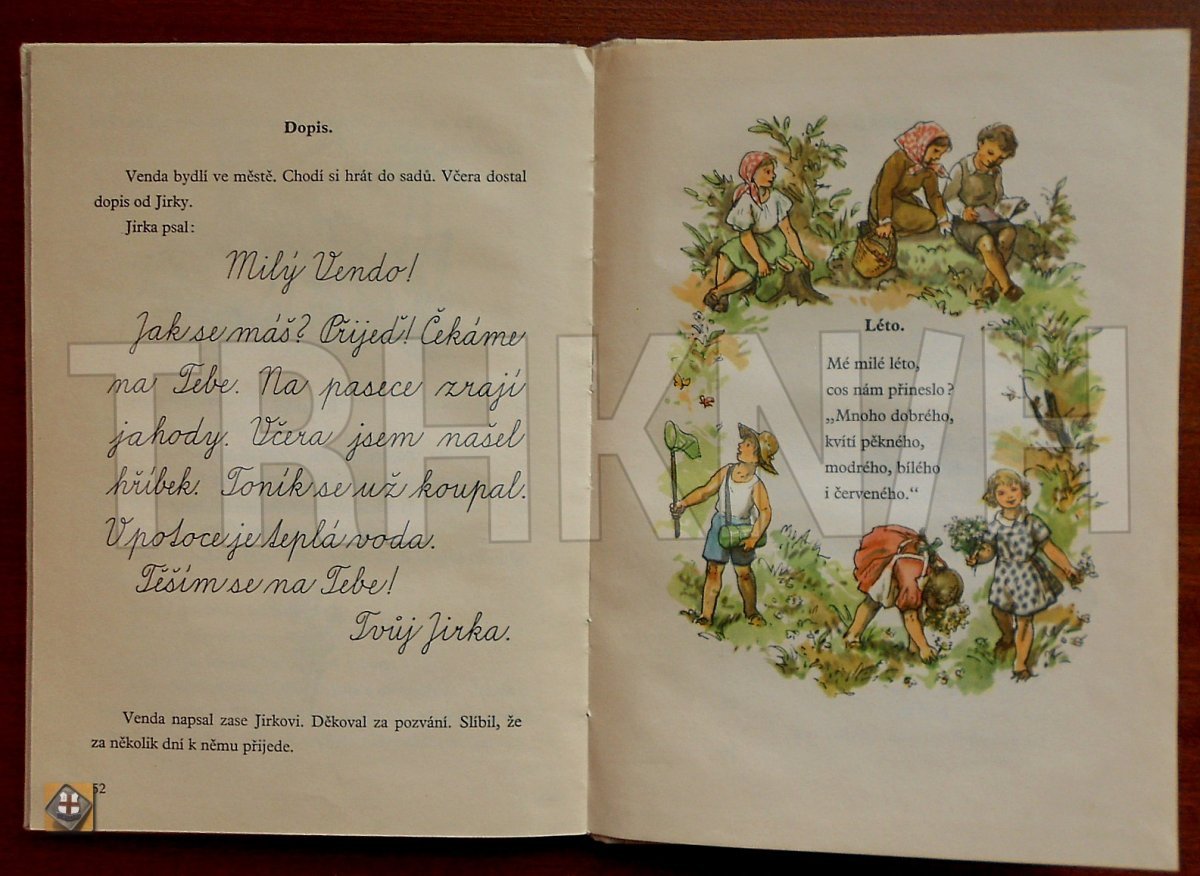 Dopis.
Venda bydlí ve městě. Chodí si hrát do sadů. Včera dostal
dopis od Jirky.
Jirka psal:
Milý Vendo!
Jak se máš? Přijeď! Čekáme
na Tebe. Na pasece zrají
jahody. Včera jsem našel
hříbek. Toník se už koupal.
V potoce je teplá voda.
Těším se na Tebe!
Tvůj Jirka.
Venda napsal zase Jirkovi. Děkoval za pozvání. Slíbil, že
za několik dní k němu přijede.
52
Léto.
Mé milé léto,
cos nám přineslo?
„Mnoho dobrého,
kvítí pěkného,
modrého, bílého
i červeného.“
TRHKNIH